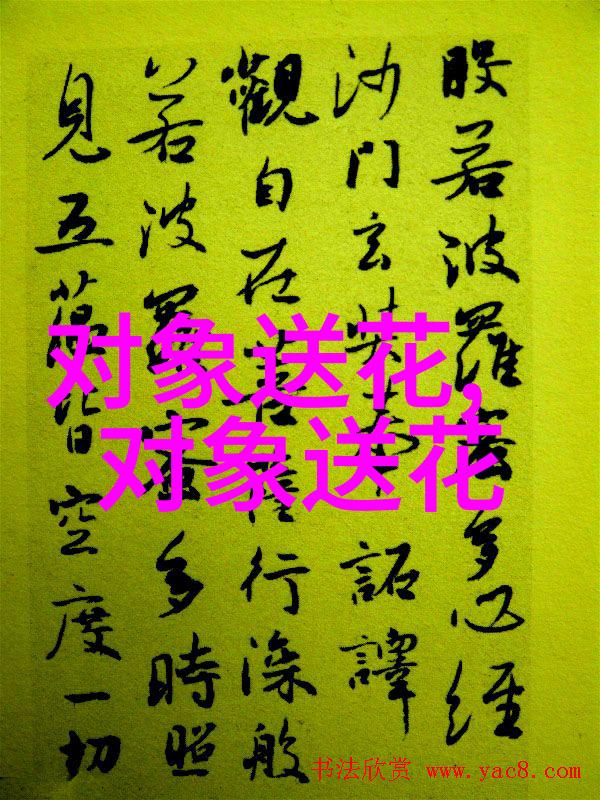 般若波羅蜜多心經
沙門玄奘奉詔譯
觀自在菩薩行深般
若波羅蜜多時照
見五蘊皆空度一切
对象送花,
对象送花
书法欣赏 www.yac8.com